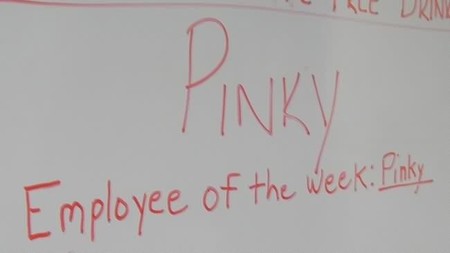 FREE DRINK
PINKY
Employee of the week: Pinky